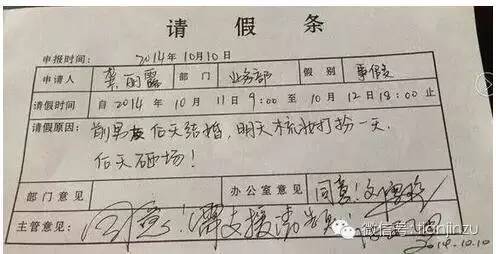 请假条
申报时间： 2014年10月10日
申请人 龚丽露 部门 业务部 假别 事假
请假时间 自2014年10月11日9:00至10月12日18:00止
请假原因： 前男友后天结婚，明天梳妆打扮一天，
后天砸场！
部门意见 办公室意见 同意！
主管意见： 同意！需支援请告知！
2014.10.10
微信号: vixinjinzu